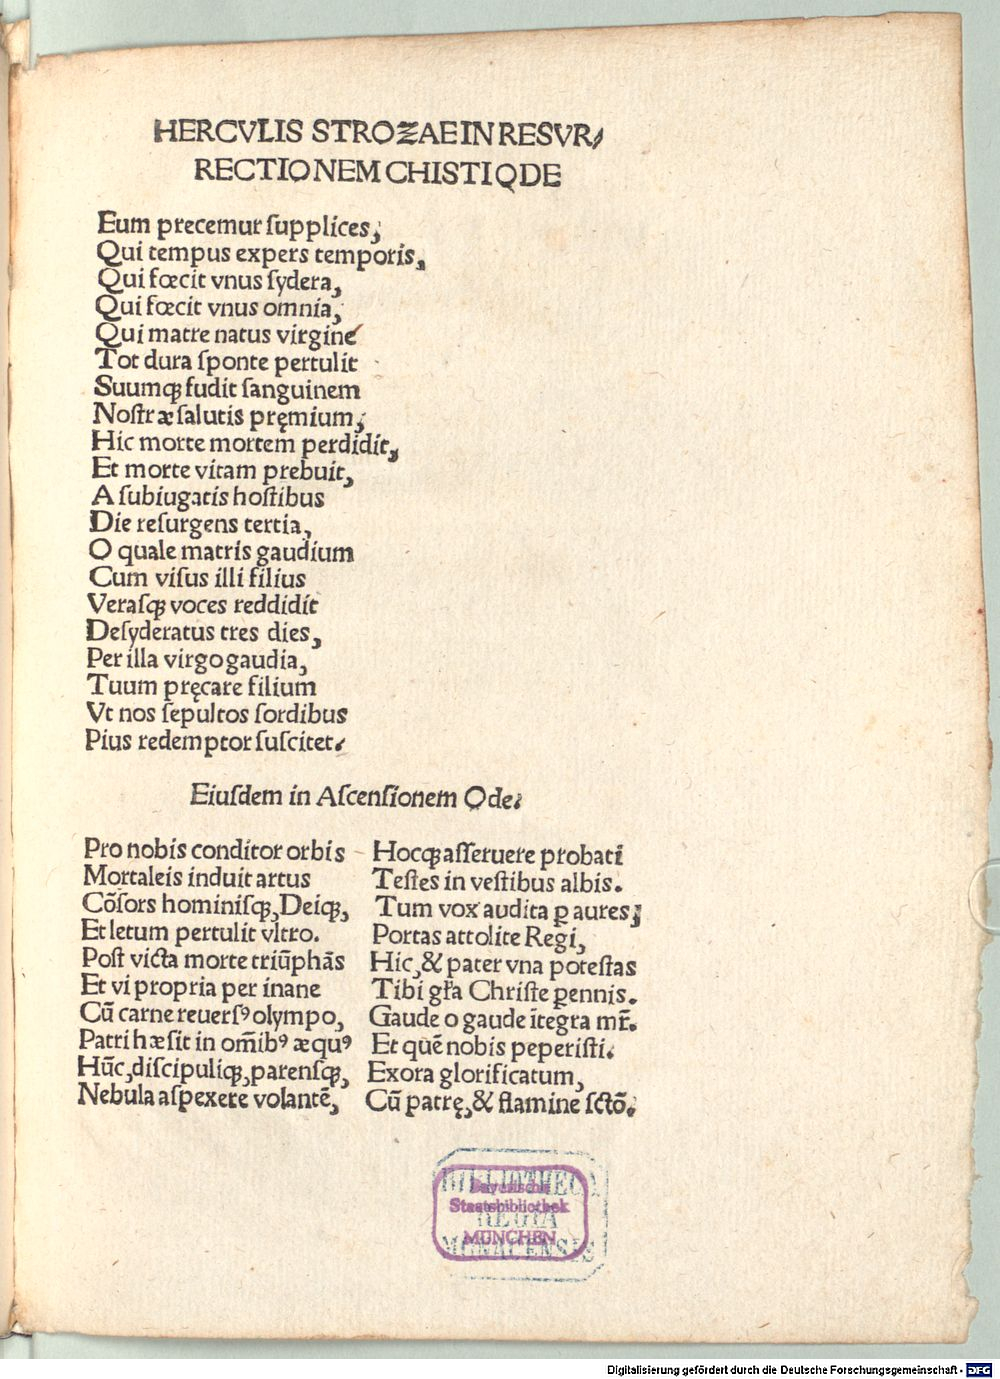 HERCVLIS STROZAE IN RESVR/
RECTIONEM CHISTI ODE
Eum precemur ſupplices;
Qui tempus expers temporis,
Qui fœcit vnus ſydera,
Qui fœcit vnus omnia,
Qui matre natus virgine
Tot dura ſponte pertulit
Suumqꝫ fudit ſanguinem
Noſtræ ſalutis pręmium;
Hic morte mortem perdidit,
Et morte vitam prebuit,
A ſubiugatis hoſtibus
Die reſurgens tertia,
O quale matris gaudium
Cum viſus illi filius
Veraſqꝫ voces reddidit
Deſyderatus tres dies,
Per illa virgo gaudia,
Tuum pręcare filium
Vt nos ſepultos ſordibus
Pius redemptor ſuſcitet.
Eiuſdem in Aſcenſionem Ode.
Pro nobis conditor orbis
Mortaleis induit artus
Cõſors hominiſqꝫ, Deiqꝫ,
Et letum pertulit vltro.
Poſt victa morte triũphãs
Et vi propria per inane
Cũ carne reuerſꝰ olympo,
Patri hæſit in om̃ibꝰ æquꝰ
Hũc, diſcipuliqꝫ, parenſqꝫ,
Nebula aſpexere volantẽ,
Hocqꝫ aſſeruere probati
Teſtes in veſtibus albis.
Tum vox audita ꝑ aures;
Portas attolite Regi,
Hic, & pater vna poteſtas
Tibi gr̃a Chriſte ꝑennis.
Gaude o gaude ĩtegra mr̃.
Et quẽ nobis peperiſti.
Exora glorificatum,
Cũ patrę, & flamine ſctõ.
BIBLIOTHECA
REGIA
MONACENSIS
Bayerische
Staatsbibliothek
MÜNCHEN
Digitalisierung gefördert durch die Deutsche Forschungsgemeinschaft - DFG